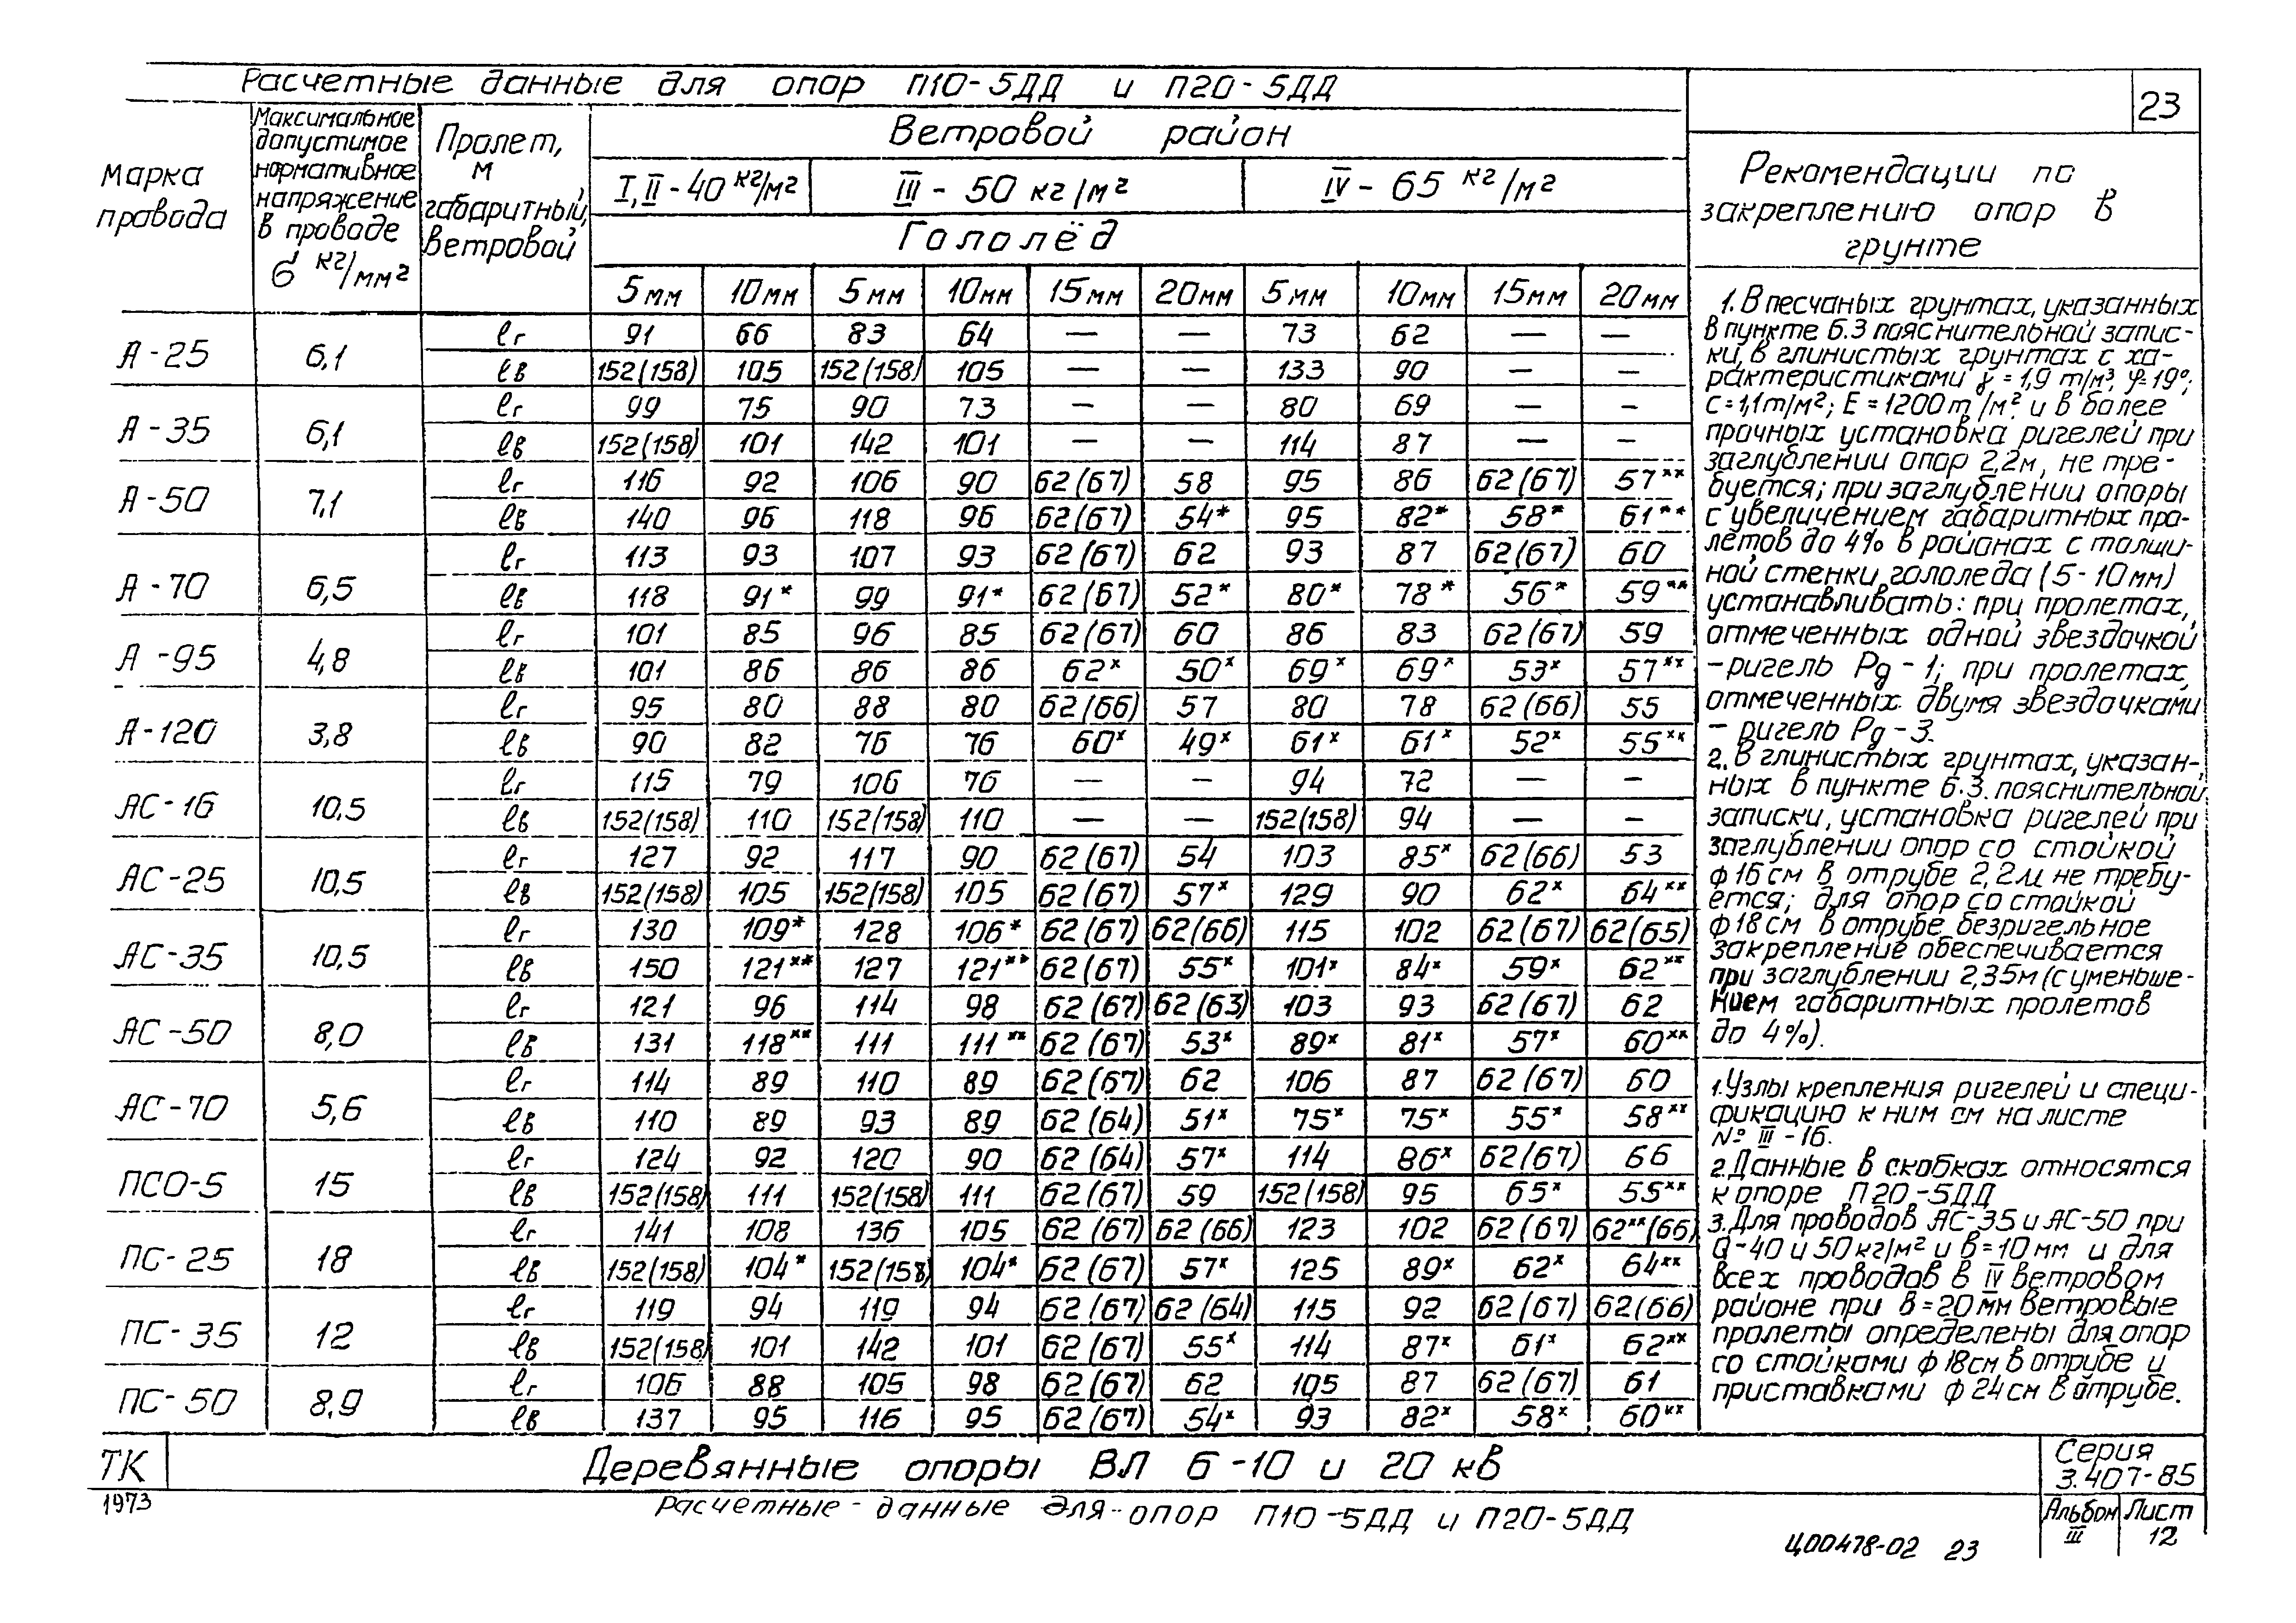 Расчетные данные для опор П10-5ДД и П20-5ДД
23
Марка провода
Максимальное допустимое нормативное напряжение в проводе σ кг/мм²
Пролет, м габаритный, ветровой
Ветровой район
I, II - 40 кг/м² III - 50 кг/м² IV - 65 кг/м²
Гололёд
5мм 10мм 5мм 10мм 15мм 20мм 5мм 10мм 15мм 20мм
А-25 6,1 lг 91 66 83 64 — — 73 62 — —
lв 152(158) 105 152(158) 105 — — 133 90 — —
А-35 6,1 lг 99 75 90 73 — — 80 69 — —
lв 152(158) 101 142 101 — — 114 87 — —
А-50 7,1 lг 116 92 106 90 62(67) 58 95 86 62(67) 57**
lв 140 96 118 96 62(67) 54* 95 82* 58* 61**
А-70 6,5 lг 113 93 107 93 62(67) 62 93 87 62(67) 60
lв 118 91* 99 91* 62(67) 52* 80* 78* 56* 59**
А-95 4,8 lг 101 85 96 85 62(67) 60 86 83 62(67) 59
lв 101 86 86 86 62* 50* 69* 69* 53* 57**
А-120 3,8 lг 95 80 88 80 62(66) 57 80 78 62(66) 55
lв 90 82 76 76 60* 49* 61* 61* 52* 55**
АС-16 10,5 lг 115 79 106 76 — — 94 72 — —
lв 152(158) 110 152(158) 110 — — 152(158) 94 — —
АС-25 10,5 lг 127 92 117 90 62(67) 54 103 85* 62(66) 53
lв 152(158) 105 152(158) 105 62(67) 57* 129 90 62* 64**
АС-35 10,5 lг 130 109* 128 106* 62(67) 62(66) 115 102 62(67) 62(65)
lв 150 121** 127 121** 62(67) 55* 101* 84* 59* 62**
АС-50 8,0 lг 121 96 114 98 62(67) 62(63) 103 93 62(67) 62
lв 131 118** 111 111** 62(67) 53* 89* 81* 57* 60**
АС-70 5,6 lг 114 89 110 89 62(67) 62 106 87 62(67) 60
lв 110 89 93 89 62(64) 51* 75* 75* 55* 58**
ПСО-5 15 lг 124 92 120 90 62(64) 57* 114 86* 62(67) 66
lв 152(158) 111 152(158) 111 62(67) 59 152(158) 95 65* 55**
ПС-25 18 lг 141 108 136 105 62(67) 62(66) 123 102 62(67) 62**(66)
lв 152(158) 104* 152(158) 104* 62(67) 57* 125 89* 62* 64**
ПС-35 12 lг 119 94 119 94 62(67) 62(64) 115 92 62(67) 62(66)
lв 152(158) 101 142 101 62(67) 55* 114 87* 61* 62**
ПС-50 8,9 lг 106 88 105 98 62(67) 62 105 87 62(67) 61
lв 137 95 116 95 62(67) 54* 93 82* 58* 60**
Рекомендации по
закреплению опор в
грунте
1. В песчаных грунтах, указанных
в пункте 6.3 пояснительной запис-
ки, в глинистых грунтах с ха-
рактеристиками γ = 1,9 т/м³, φ=19°;
С=1,1т/м²; Е=1200т/м² и в более
прочных установка ригелей при
заглублении опор 2,2м, не тре-
буется; при заглублении опоры
с увеличением габаритных про-
летов до 4% в районах с толщи-
ной стенки гололеда (5-10мм)
устанавливать: при пролетах,
отмеченных одной звездочкой
- ригель Рд-1; при пролетах,
отмеченных двумя звездочками
- ригель Рд-3.
2. В глинистых грунтах, указан-
ных в пункте 6.3. пояснительной
записки, установка ригелей при
заглублении опор со стойкой
ф16см в отрубе 2,2м не требу-
ется; для опор со стойкой
ф18см в отрубе безригельное
закрепление обеспечивается
при заглублении 2,35м (с уменьше-
нием габаритных пролетов
до 4%).
1. Узлы крепления ригелей и специ-
фикацию к ним см на листе
№ III-16.
2. Данные в скобках относятся
к опоре П20-5ДД
3. Для проводов АС-35 и АС-50 при
Q-40 и 50кг/м² и в=10мм и для
всех проводов в IV ветровом
районе при в=20мм ветровые
пролеты определены для опор
со стойками ф18см в отрубе и
приставками ф24см в отрубе.
ТК
1973
Деревянные опоры ВЛ 6-10 и 20 кв
Расчетные данные для опор П10-5ДД и П20-5ДД
Серия
3.407-85
Альбом III
Лист 12
Ц00478-02 23